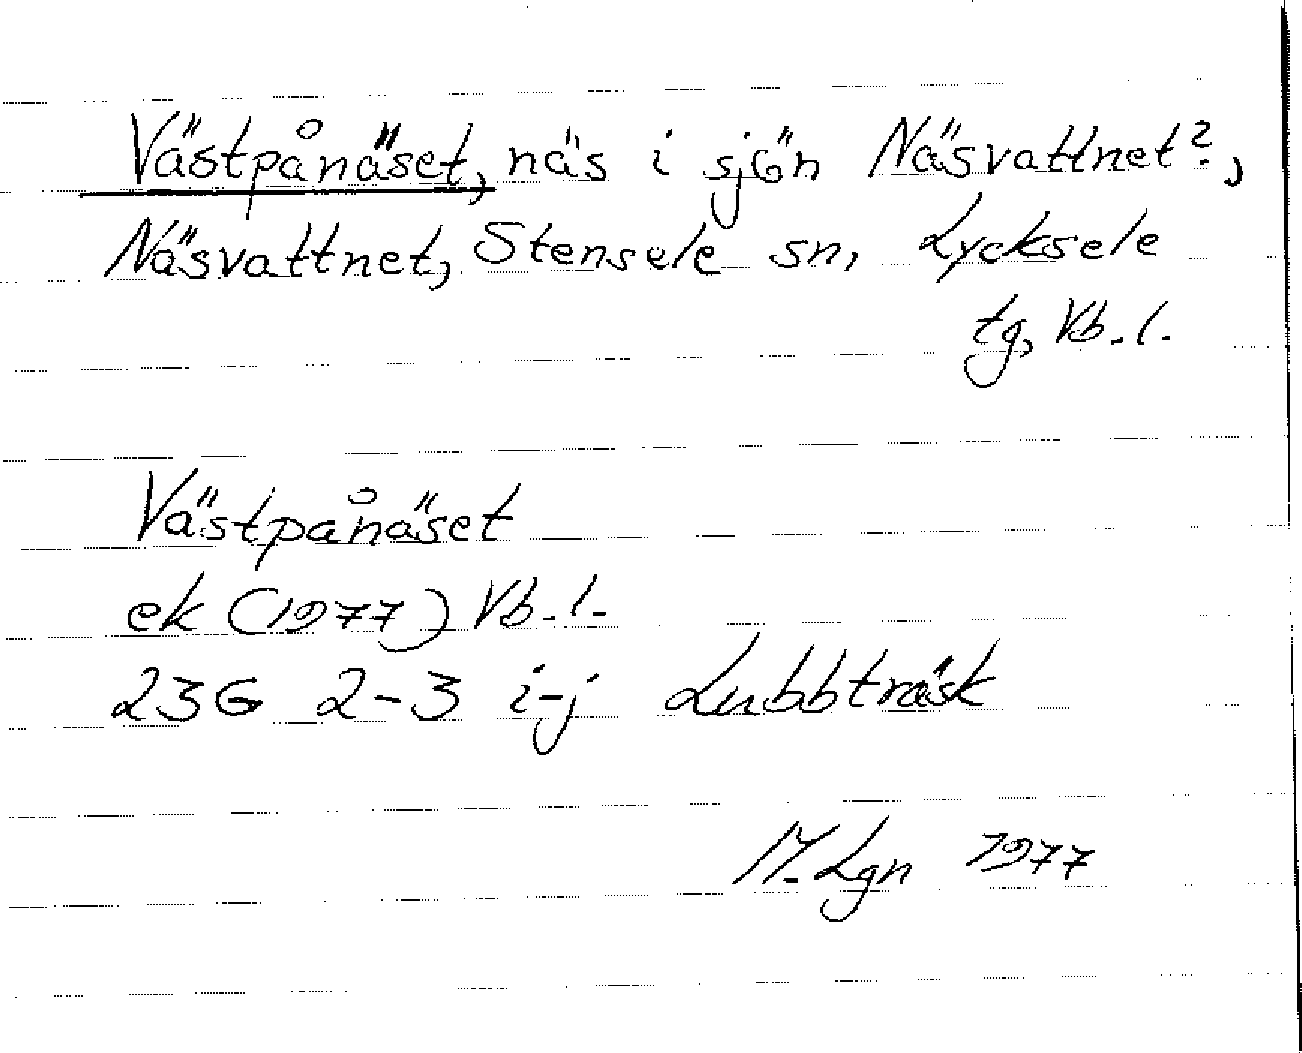 Västpånäset, näs i sjön Näsvattnet?,
Näsvattnet, Stensele sn, Lycksele
tg, Vb. l.
Västpånäset
ek (1977) Vb. l.
23G 2-3 i-j Lubbträsk
M. Lgn 1977